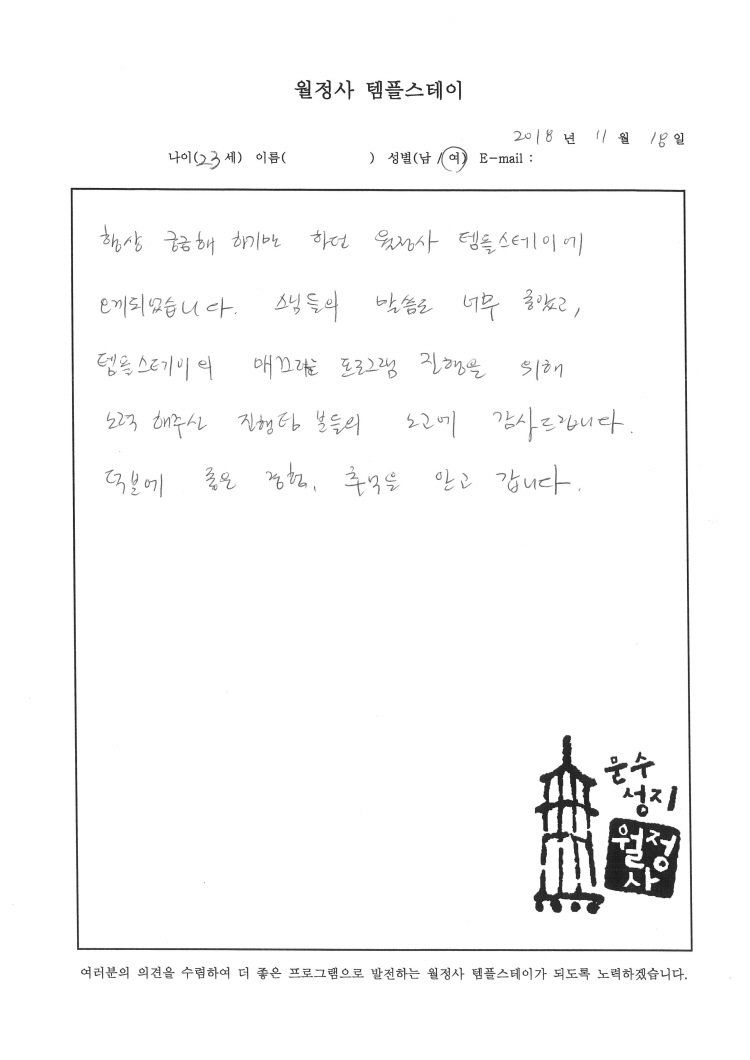 월정사 템플스테이
2018 년 11 월 18 일
나이(23 세) 이름( ) 성별(남 / 여) E-mail :
항상 궁금해 하기만 하던 월정사 템플스테이에
오게되었습니다. 스님들의 말씀도 너무 좋았고,
템플스테이의 매끄러운 프로그램 진행을 위해
노력 해주신 진행팀 분들의 노고에 감사드립니다.
덕분에 좋은 경험, 추억을 안고 갑니다.
문수
성지
월정
사
여러분의 의견을 수렴하여 더 좋은 프로그램으로 발전하는 월정사 템플스테이가 되도록 노력하겠습니다.